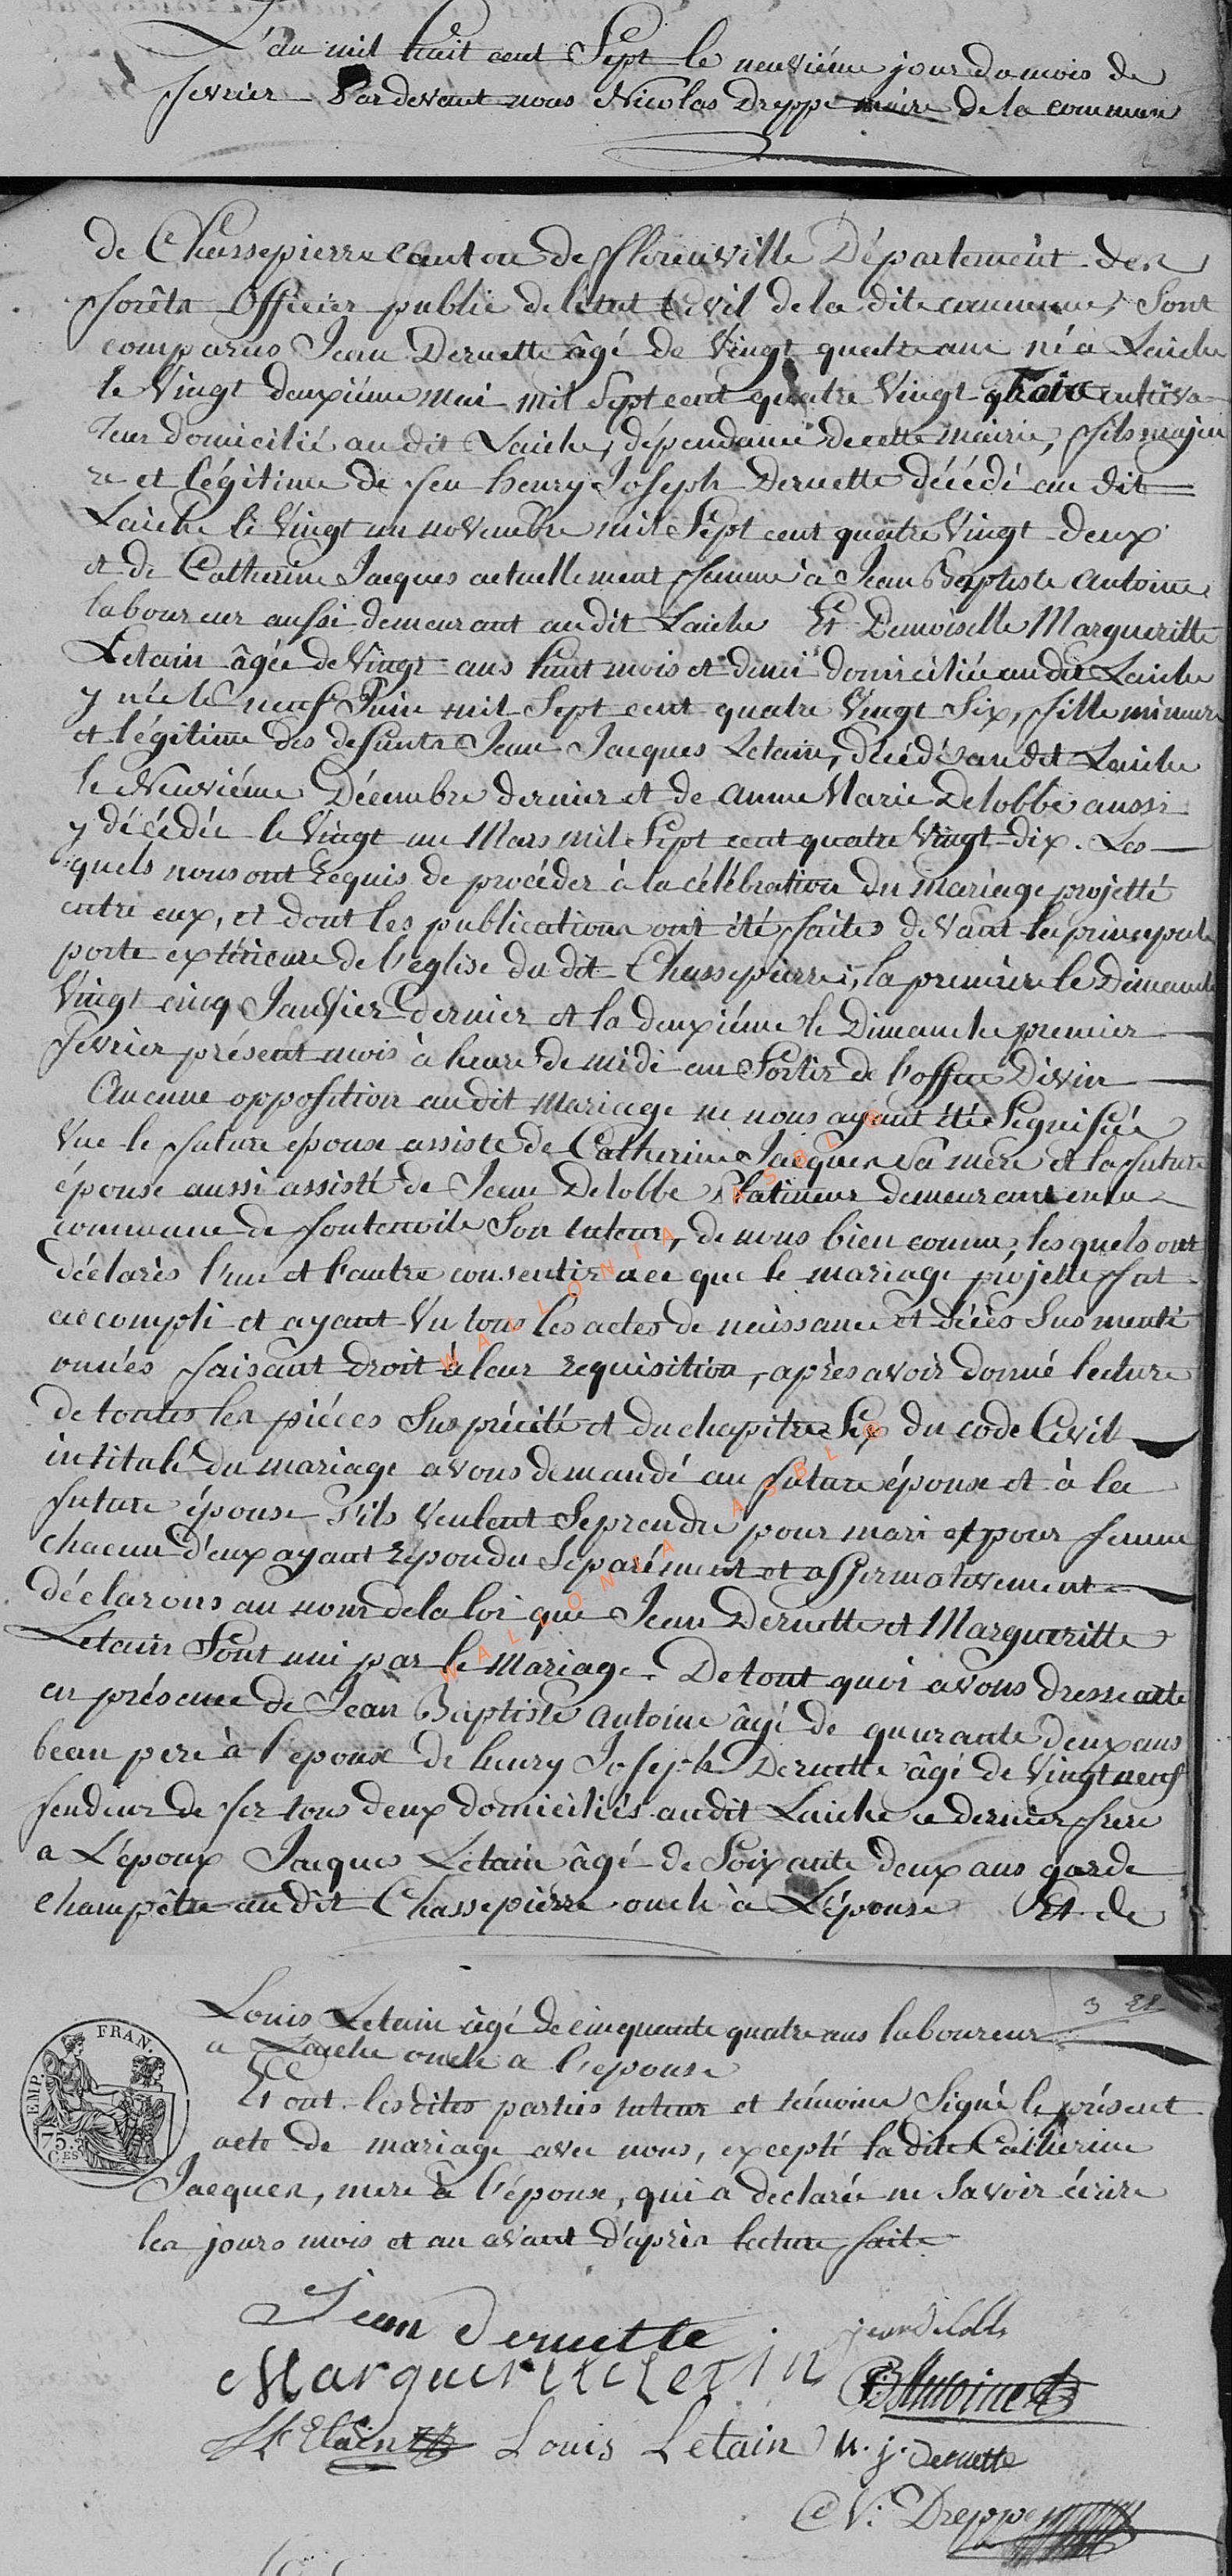 L'an mil huit cent Sept le neuviéme jour du mois de
fevrier Pardevant nous Nicolas Dreppe maire de la commune
de Chassepierre canton de fflorenville Département des
forêts officier public de l'état Civil de la dite commune, Sont
comparus Jean Deruette âgé de Vingt quatre ans né à Laiche
le Vingt deuxiéme mai mil Sept cent quatre Vingt cultiva-
teur domicilié au dit Laiche, dépendance de cette mairie, fils majeu
re et légitime de feu henry Joseph Deruette décédé au dit
Laiche le Vingt un novembre mil Sept cent quatre Vingt deux
et de Catherine Jacques actuellement femme à Jean Baptiste antoine
laboureur aussi demeurant audit Laiche Et Demoiselle Margueritte
Letain âgée de Vingt ans huit mois et demi domiciliée au dit Laiche
y née le neuf Juin mil Sept cent quatre Vingt Six, fille mineure
et légitime des defunts Jean Jacques Letain, décédé au dit Laiche
le Neuviéme Décembre dernier et de anne Marie Delobbe aussi
y décédée le Vingt un Mars mil Sept cent quatre Vingt dix. Les
quels nous ont Requis de procéder à la célébration du mariage projetté
entre eux, et dont les publications ont été faites devant la principale
porte extérieure de l'eglise du dit Chassepierre, la premiere le Dimanche
Vingt cinq Janvier dernier et la deuxiéme le Dimanche premier
fevrier présent mois à heure de midi au Sortir de l'office Divin
Aucune opposition audit mariage ne nous ayant été Signifiée
Vue le future épouse assisté de Catherine Jacques Sa mère et la future
épouse aussi assisté de Jean Delobbe platineur demeurant en la
commune de fontenoile Son tuteur, de nous bien connu, les quels ont
déclarès l'un et l'autre consentir a ce que le mariage projetté fat
accompli et ayant Vu tous les actes de naissance et décès Sus menti
onnées faisant droit à leur requisition, après avoir donné lecture
de toutes les piéces Sus précité et du chapitre Six du code Civil
intitulé du mariage avons demandé au future épouse et à la
future épouse S'ils Veulent Seprendre pour mari et pour femme
chacun d'eux ayant repondu Séparément et affirmativement
déclarons au nom de la loi que Jean Deruette et Margueritte
Letain Sont uni par le mariage. De tout quoi avons dressé acte
en présence de Jean Baptiste antoine âgé de quarante deux ans
beau pere à l'epoux de henry Joseph Deruette âgé de Vingt neuf
fendeur de fer tous deux domiciliés audit Laiche ce dernier frere
a L'époux Jacques Letain âgé de Soixante deux ans garde
champêtre au dit Chassepierre oncle à L'épouse Et de
3
Louis Letain âgé de cinquante quatre ans laboureur
a Laiche oncle a l'epouse
Et ont les dites parties tuteur et témoins Signé le présent
acte de mariage avec nous, excepté la dite Catherine
Jacques, mere à l'époux, qui a declarée ne Savoir écrire
les jours mois et an avant d'après lecture faite
FRAN.
EMP.
75
CES
Jean deruette
jean delobbe
Margueritte Letin
JB Antoine
Letain Louis Letain H. j. deruette
N. Dreppe
WALLONIA ASBL ©
WALLONIA ASBL ©